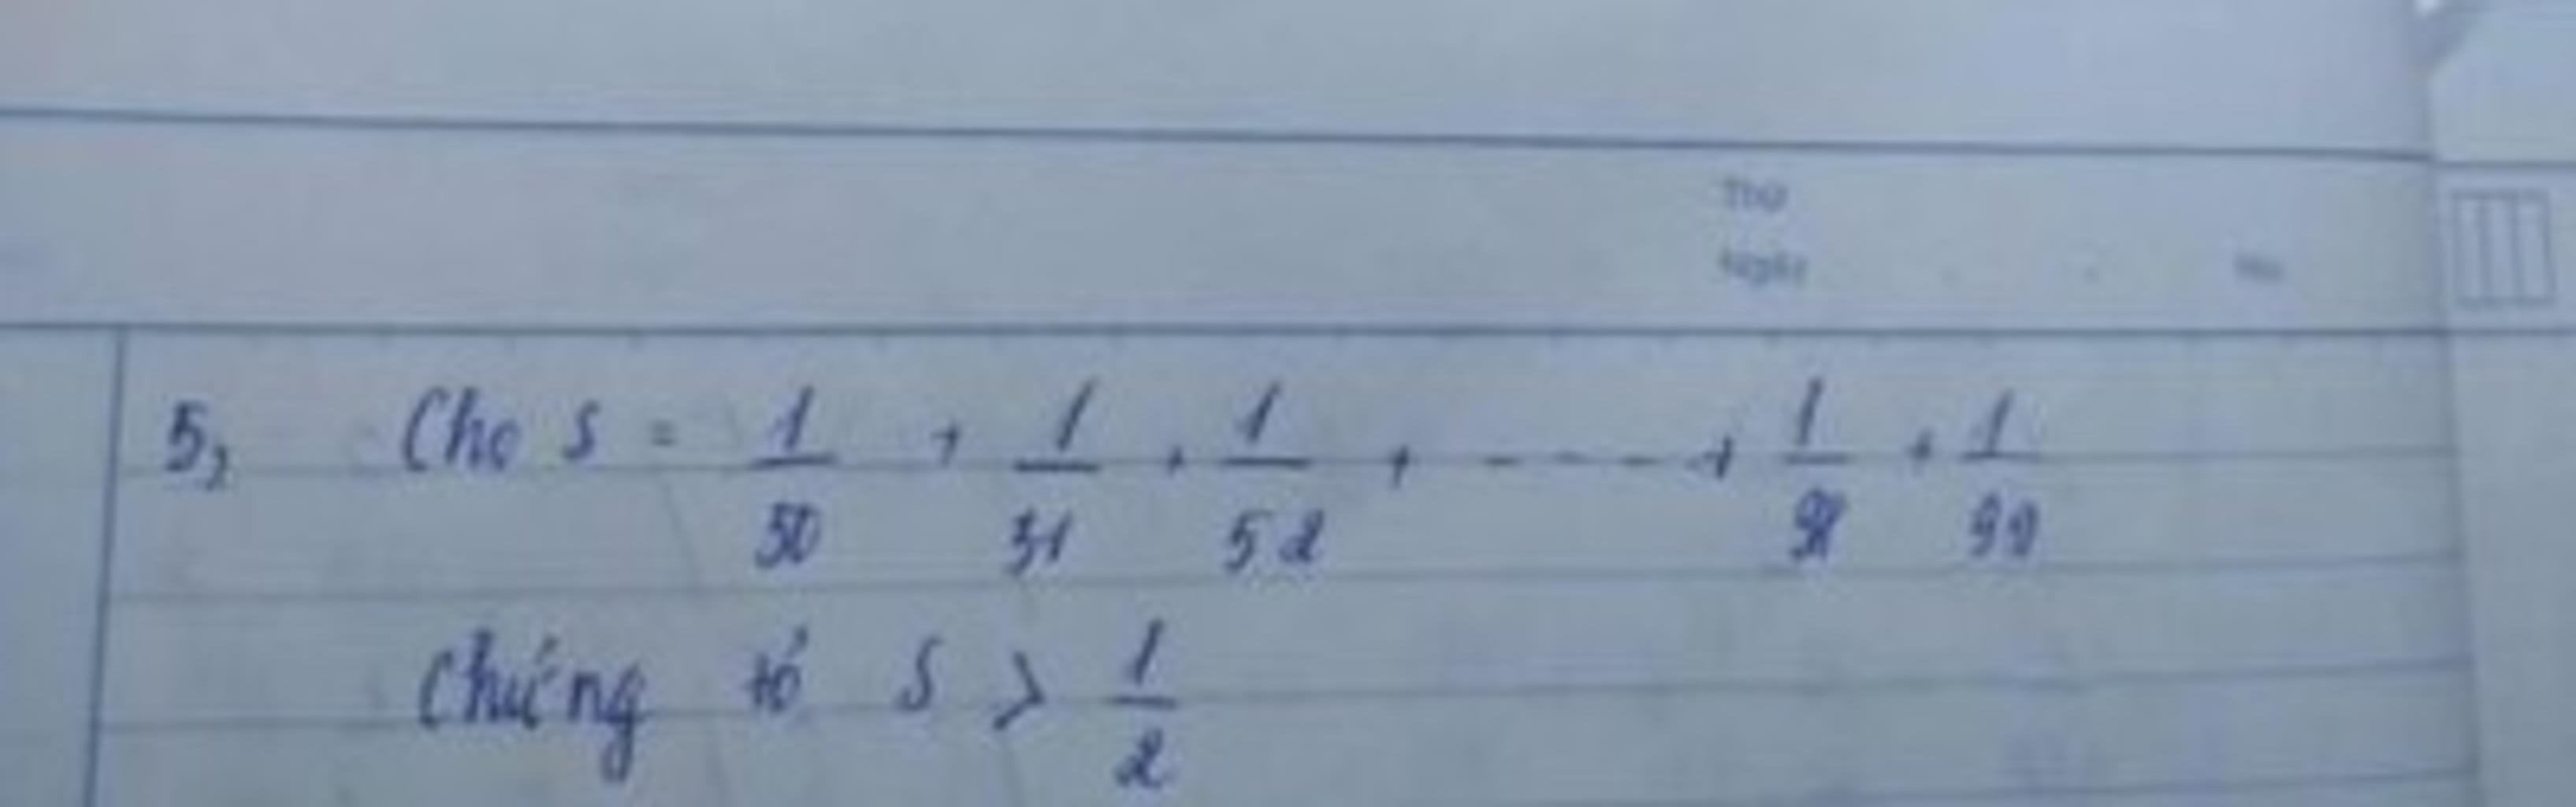 Thứ
Ngày
No
5, Cho S = 1/50 + 1/51 + 1/52 + - - - - + 1/98 + 1/99
Chứng tỏ S > 1/2